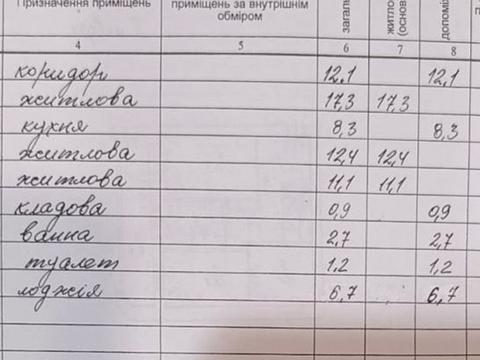 Призначення приміщень приміщень за внутрішнім обміром загаль житло (основ допоміж
4 5 6 7 8
коридор 12,1 12,1
житлова 17,3 17,3
кухня 8,3 8,3
житлова 12,4 12,4
житлова 11,1 11,1
кладова 0,9 0,9
ванна 2,7 2,7
туалет 1,2 1,2
лоджія 6,7 6,7